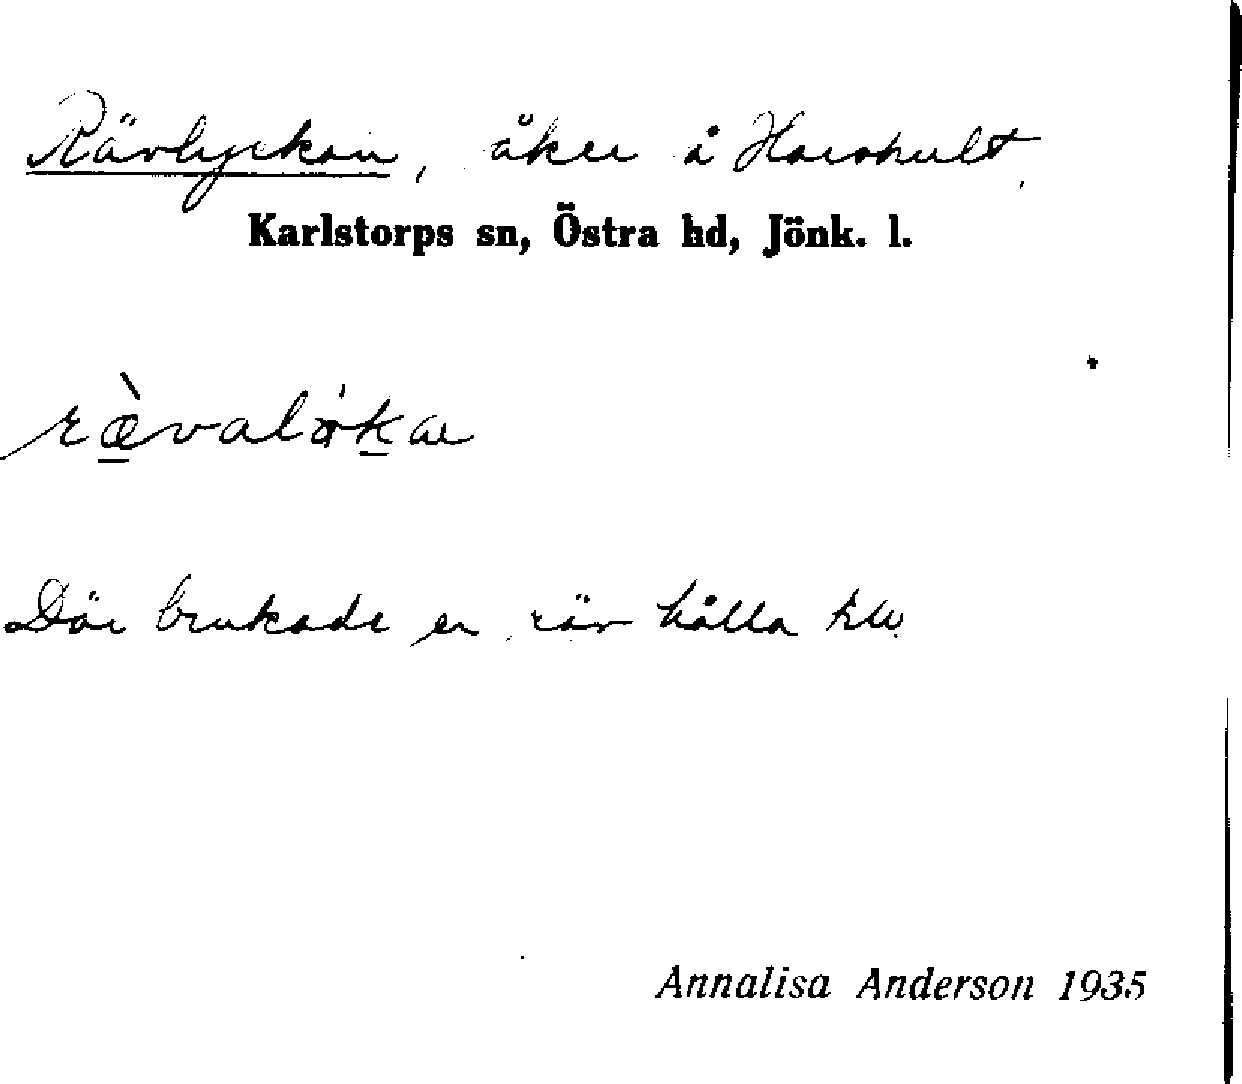 Rävlyckan, åker å Horshult.
Karlstorps sn, Östra hd, Jönk. l.
ræ̀valökα
Där brukade en räv hålla till.
Annalisa Anderson 1935